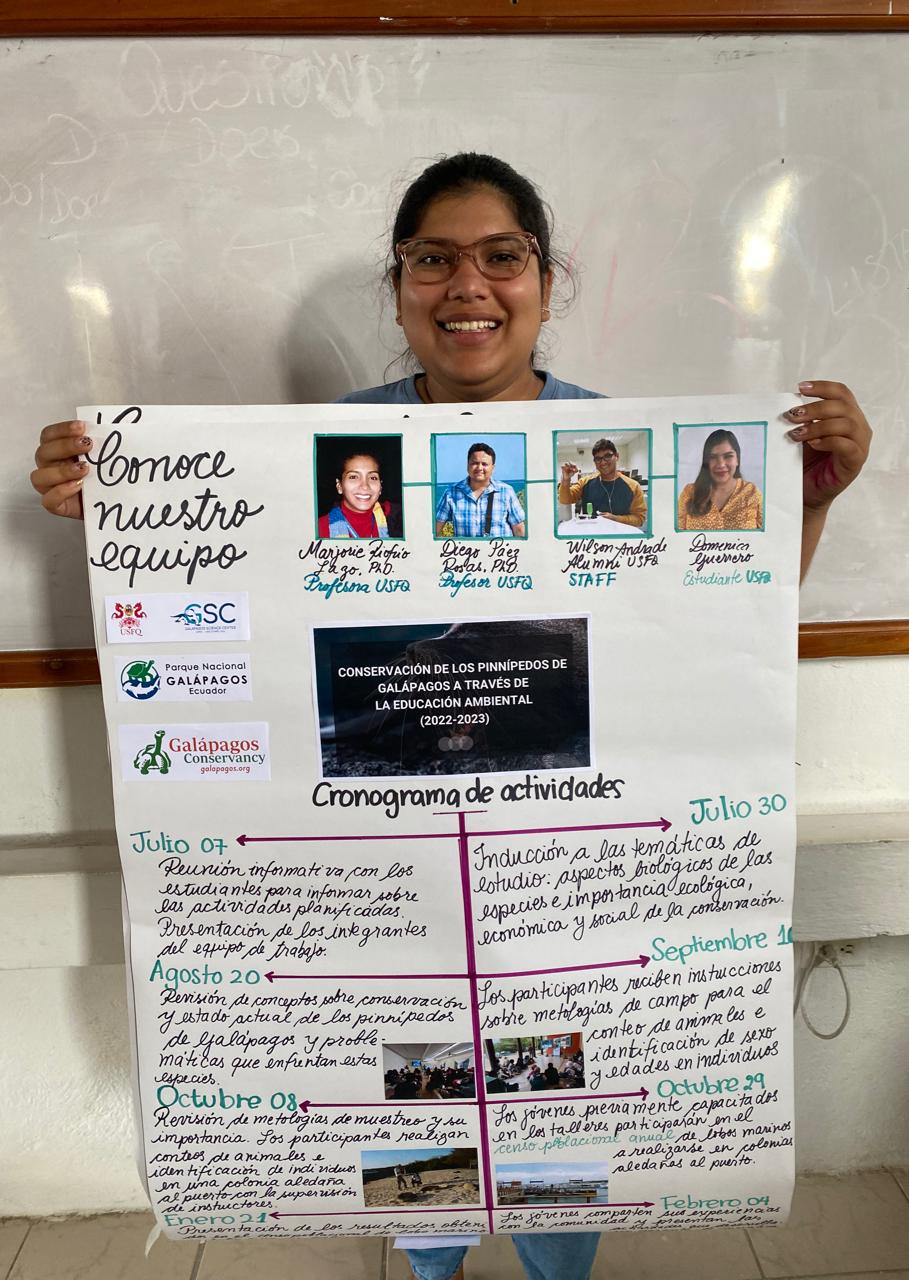 Conoce
nuestro
equipo
Marjorie Riofrío
Lazo, PhD.
Profesora USFQ
Diego Páez
Rosas, PhD.
Profesor USFQ
Wilson Andrade
Alumni USFQ
STAFF
Domenica
Guerrero
Estudiante USFQ
USFQ
GSC
GALAPAGOS SCIENCE CENTER
Parque Nacional
GALÁPAGOS
Ecuador
Galápagos
Conservancy
galapagos.org
CONSERVACIÓN DE LOS PINNÍPEDOS DE
GALÁPAGOS A TRAVÉS DE
LA EDUCACIÓN AMBIENTAL
(2022-2023)
Cronograma de actividades
Julio 07
Reunión informativa con los
estudiantes para informar sobre
las actividades planificadas.
Presentación de los integrantes
del equipo de trabajo.
Julio 30
Inducción a las temáticas de
estudio: aspectos biológicos de las
especies e importancia ecológica,
económica y social de la conservación.
Agosto 20
Revisión de conceptos sobre conservación
y estado actual de los pinnípedos
de Galápagos y proble-
máticas que enfrentan estas
especies.
Septiembre
Los participantes reciben instucciones
sobre metologías de campo para el
conteo de animales e
identificación de sexo
y edades en individuos
Octubre 08
Revisión de metologías de muestreo y su
importancia. Los participantes realizan
conteos de animales e
identificación de individuos
en una colonia aledaña
al puerto con la supervisión
de instuctores.
Octubre 29
Los jóvenes previamente capacitados
en los talleres participarán en el
censo poblacional anual de lobos marinos
a realizarse en colonias
aledañas al puerto.
Enero 21
Presentación de los resultados
Febrero 04
Los jóvenes comparten sus experiencias
con la comunidad y presentan las